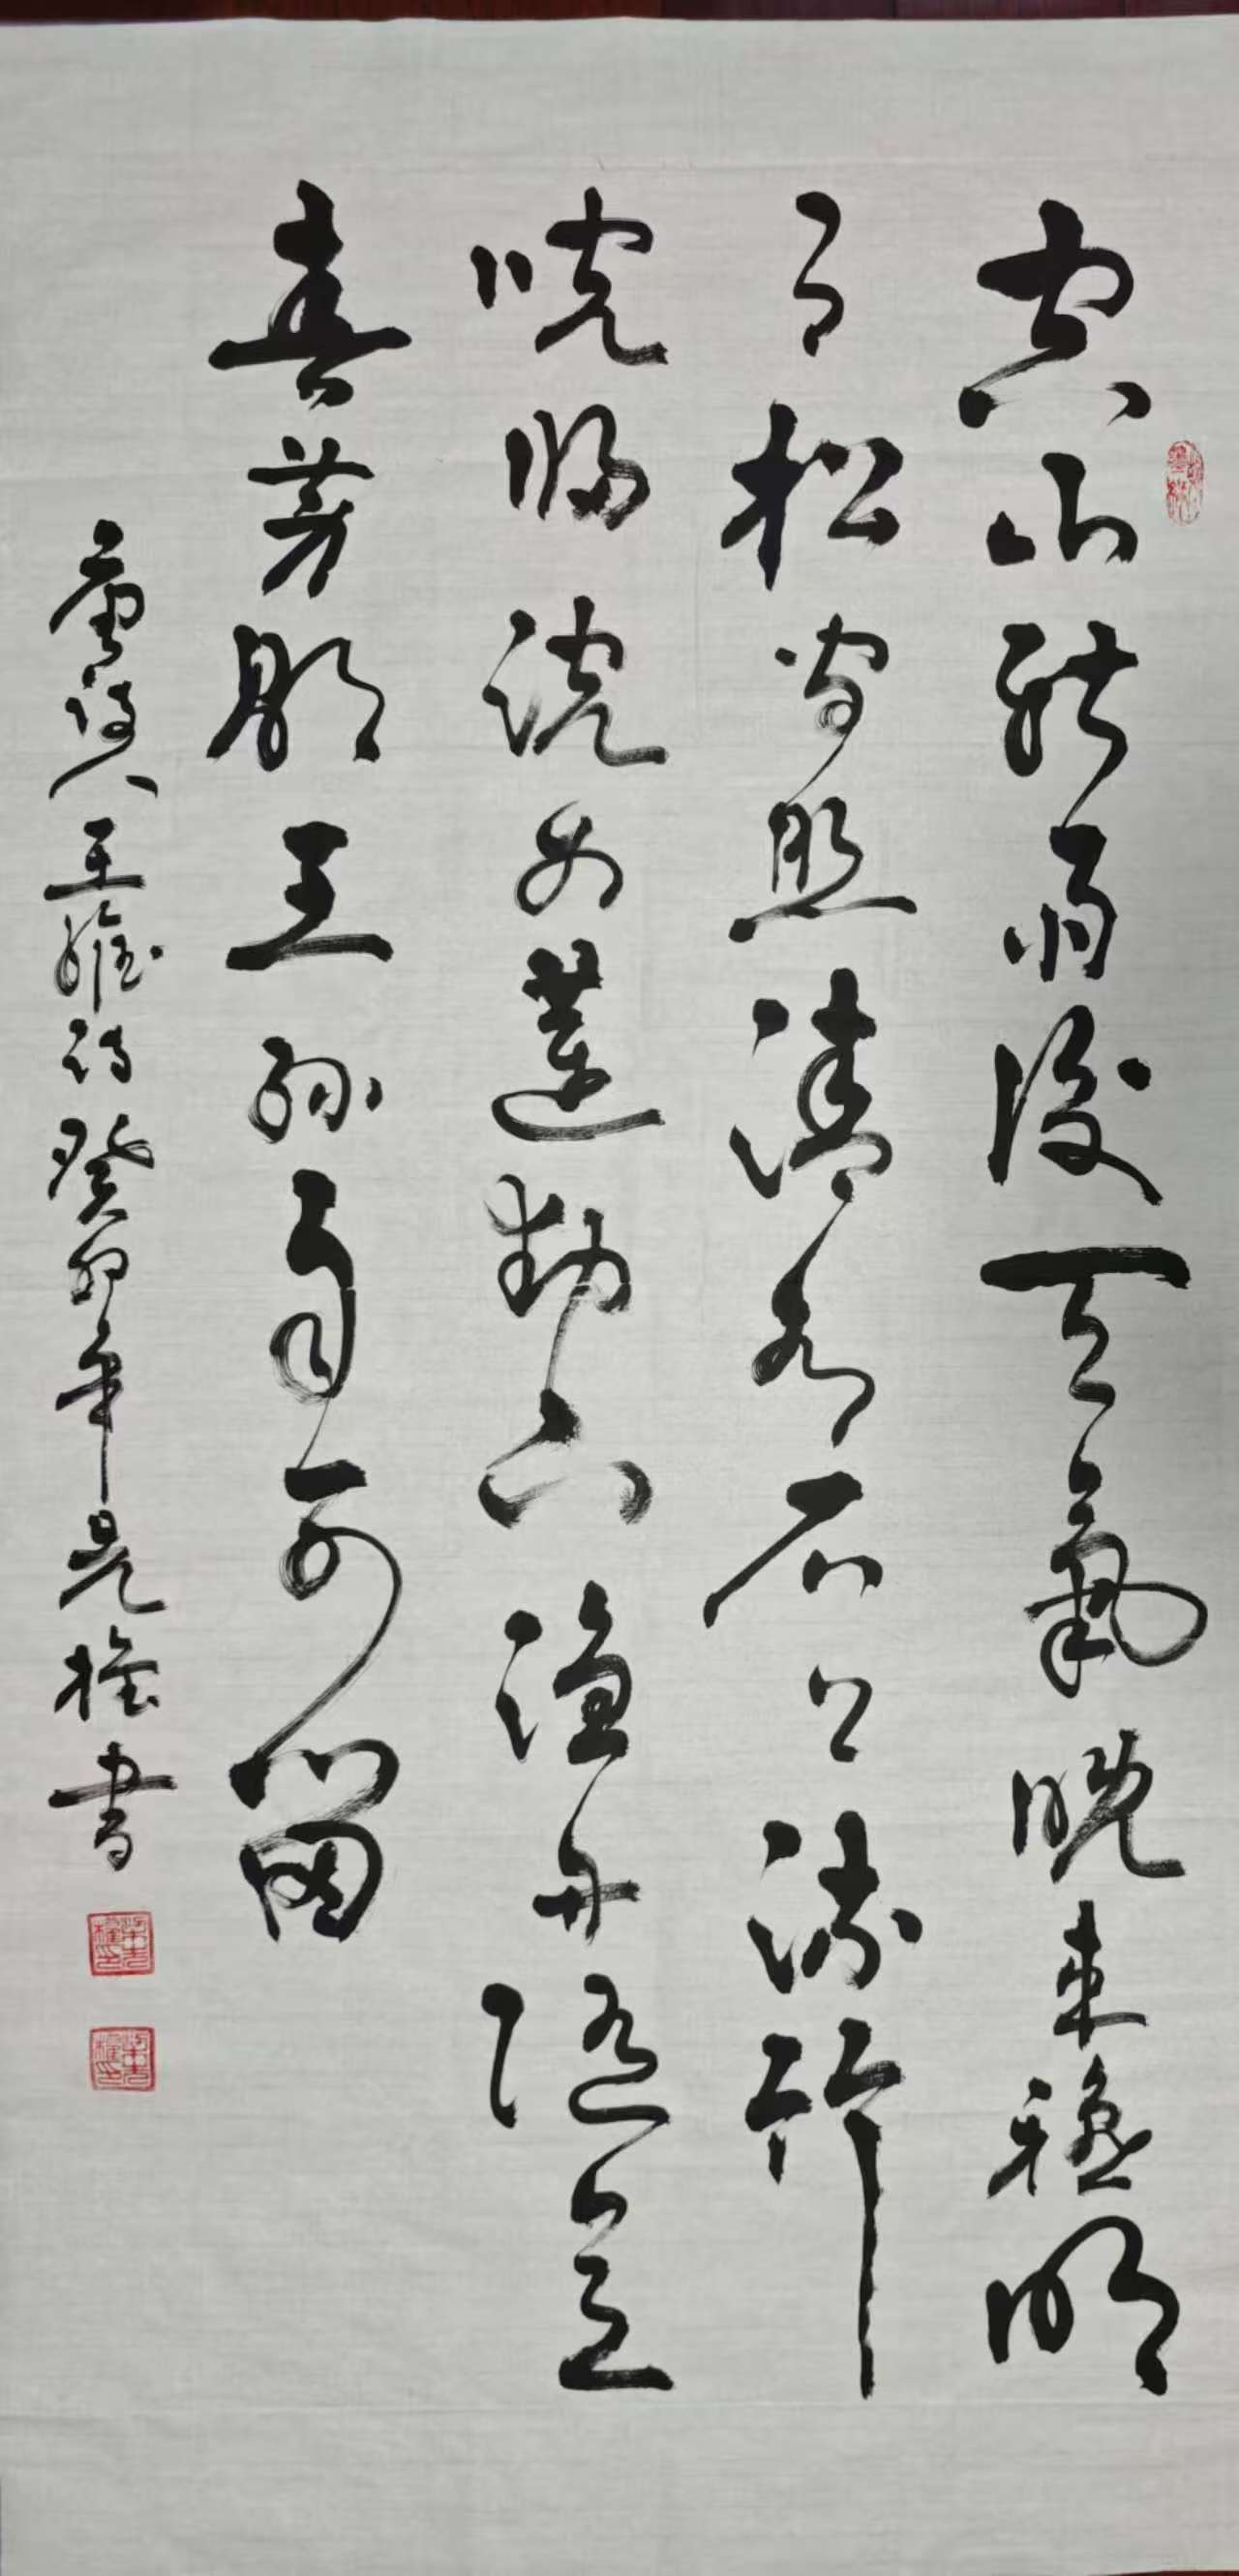 空山新雨後天氣晚來穐明
月松間照清泉石上流竹
喧歸浣女蓮動下漁舟隨意
春芳歇王孫自可留
唐詩人王維詩癸卯年書